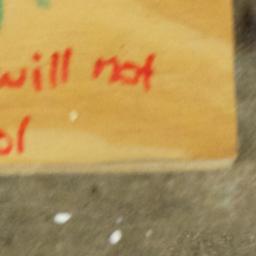 will not
ol